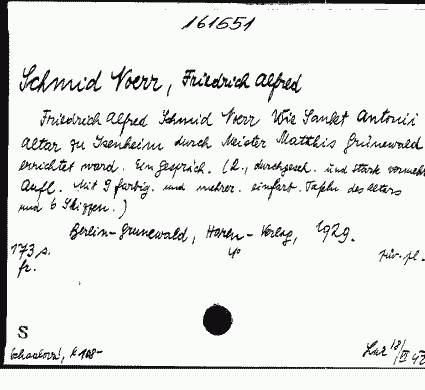 161651
Schmid Noerr, Friedrich Alfred
Friedrich Alfred Schmid Noerr Wie Sankt Antonii
Altar zu Isenheim durch Meister Matthis Grünewald
errichtet ward. Ein Gespräch. (2., durchgeseh. und stark vermehr
Aufl. Mit 9 farbig. und mehrer. einfarb. Tafeln des Altars
und 6 Skizzen.)
Berlin-Grunewald, Horen-Verlag, 1929.
173 s. 4° pův. pl.
fr.
S
K 108-